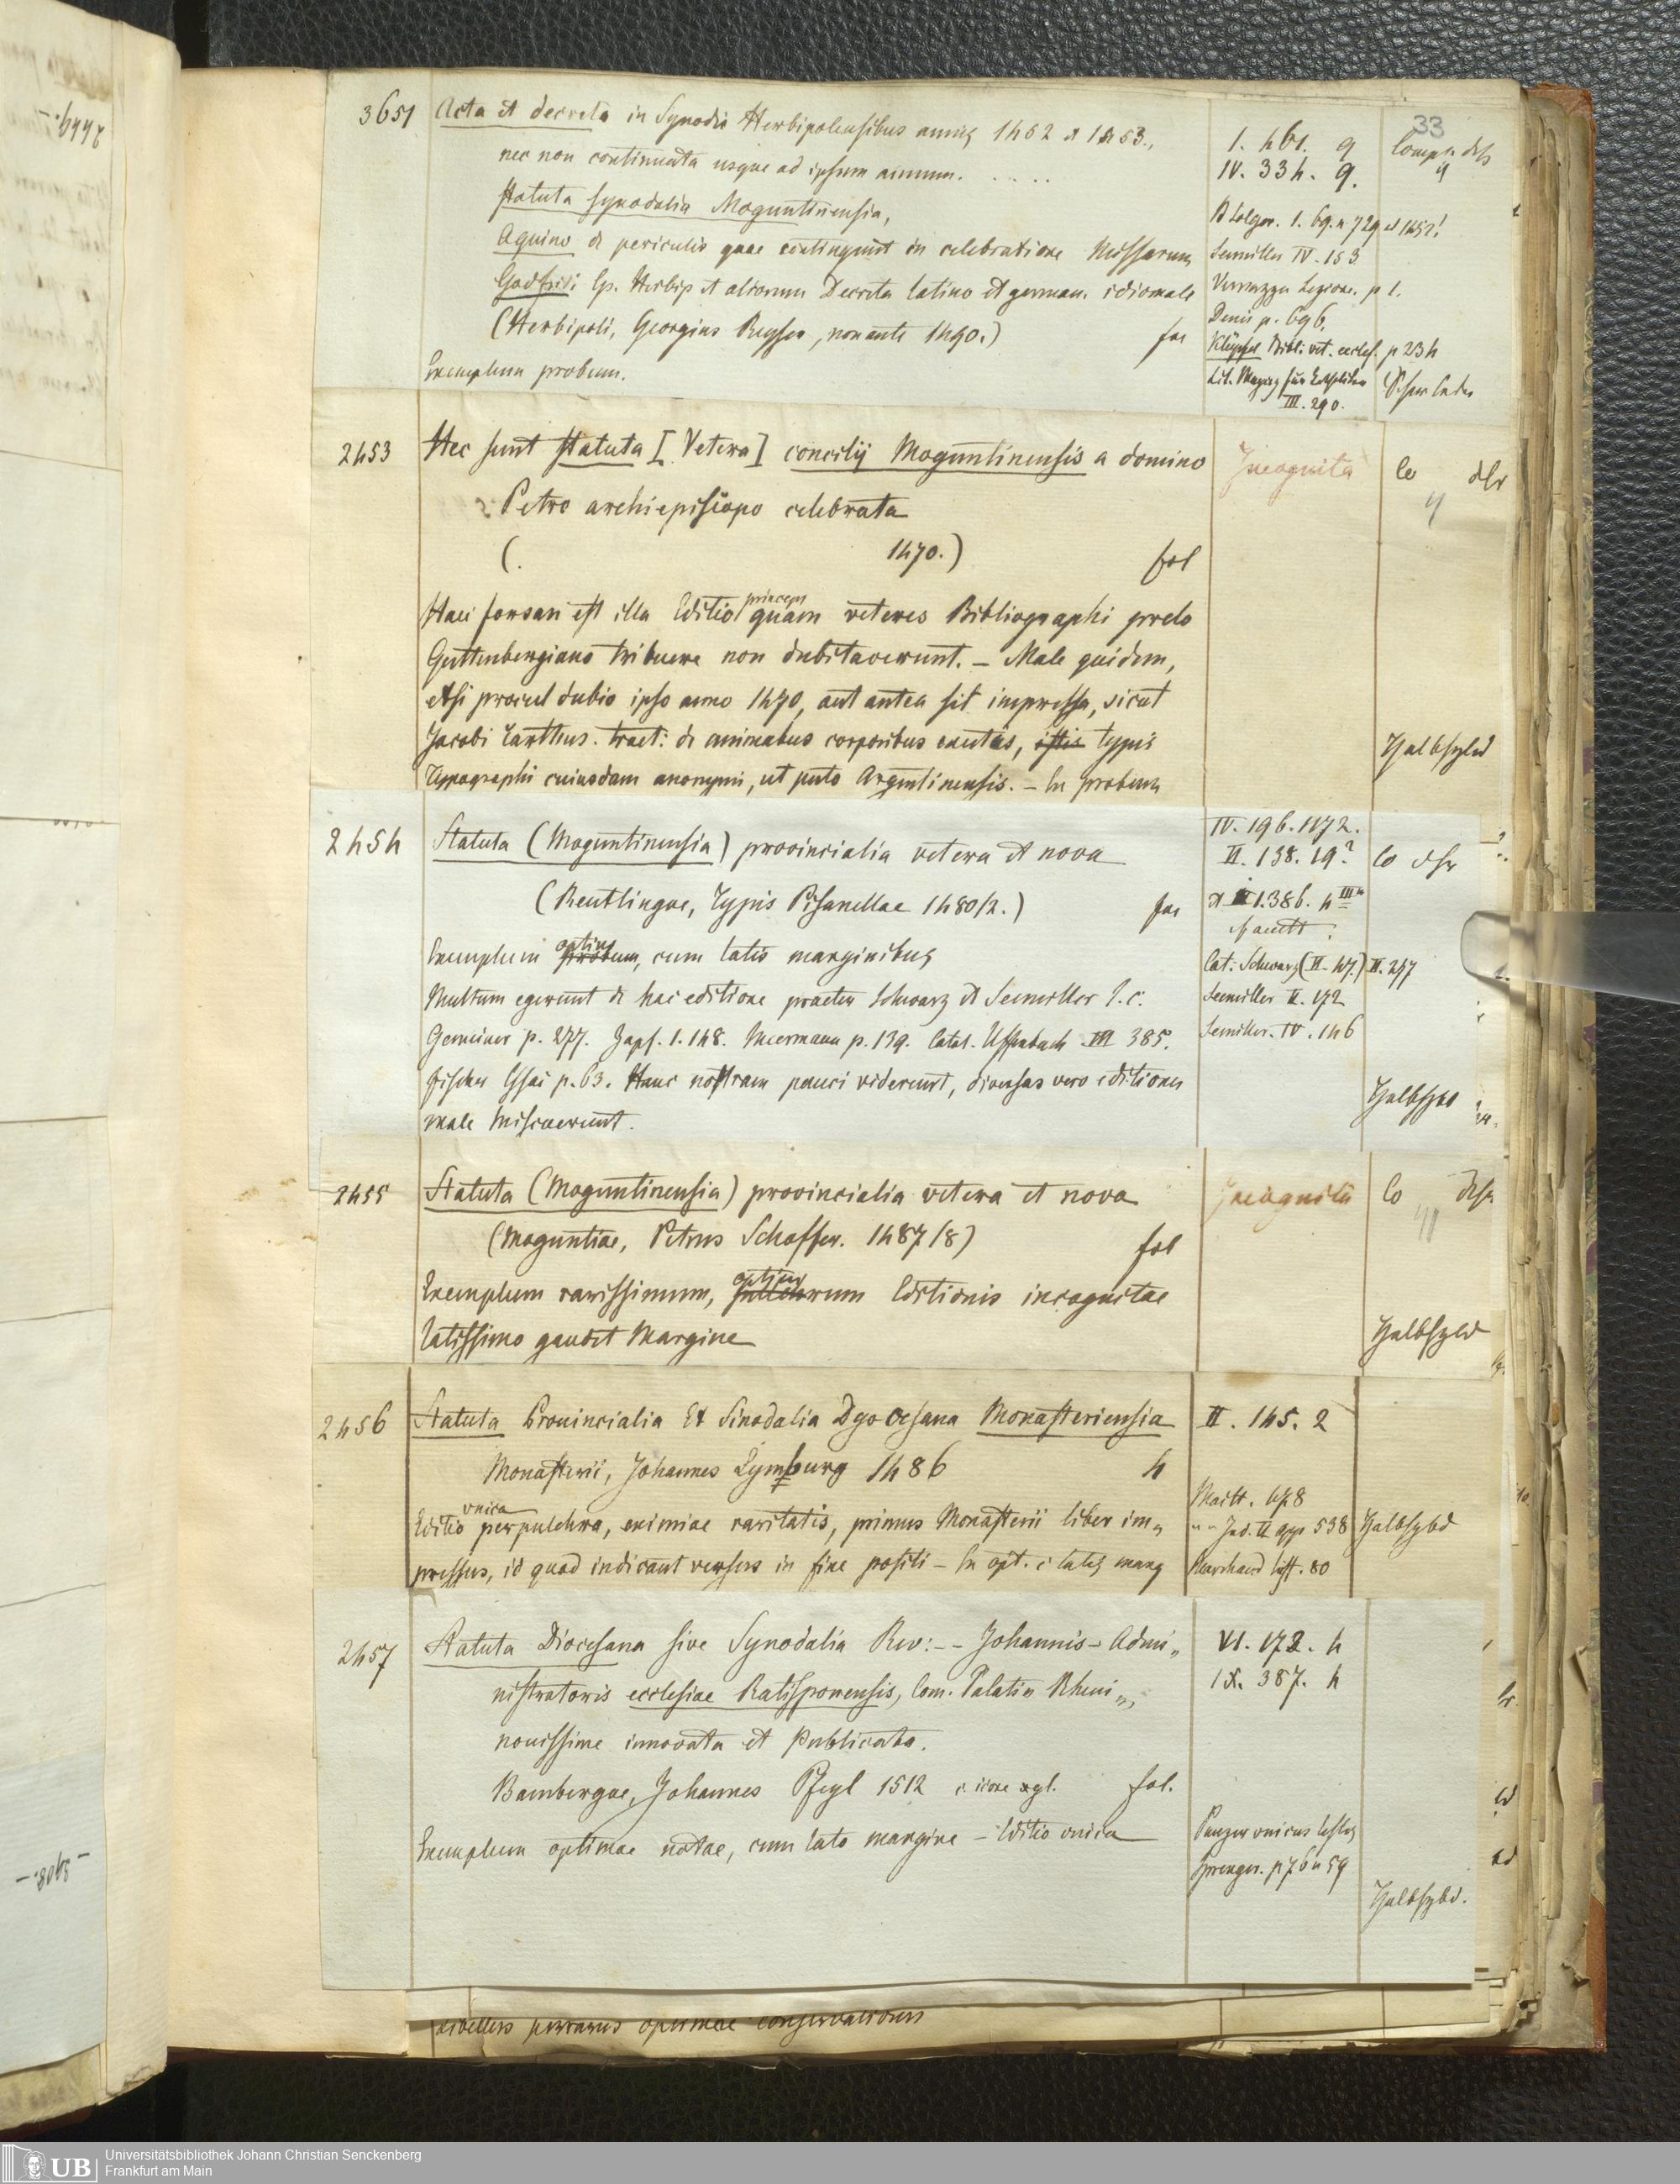 33
3651 Acta et decreta in Synodis Herbipolensibus annis 1452 et 1453.,
nec non continuata usque ad ipsum annum. . . . . .
Statuta synodalia Moguntinensia,
Aquino de periculis quae contingunt in celebratione Missarum
Godfridi Ep. Herbip et aliorum Decreta latino et german. idiomate
(Herbipoli, Georgius Reyser, non ante 1490.) fol
Exemplum probum.
I. 461. 9
IV. 334. 9.
Seemiller IV. 153
Denis p. 696.
Klüpfel Bibl. vet. eccles. p 234
III. 290.
2453 Hec sunt statuta [Vetera] concilij Moguntinensis a domino
Petro archiepiscopo celebrata
( 1470.) fol
Haec forsan est illa Editio princeps quam veteres Bibliographi prelo
Guttenbergiano tribuere non dubitaverunt. – Male quidem,
etsi procul dubio ipso anno 1470, aut antea sit impressa, sicut
Jacobi Carthus. tract: de animabus corporibus exutis, istis typis
Typographi cuiusdam anonymi, ut puto Argentinensis. – Ex probum
Incognita
Co
Halbfzbd
2454 Statuta (Moguntinensia) provincialia vetera et nova
(Reutlingae, Typis Pisanellae 1480/2.) fol
Exemplum optim probum, cum latis marginibus
Multum egerunt de hac editione praeter Schwarz et Seemiller l. c.
Gemeiner p. 277. Zapf. 1. 148. Meermann p. 139. Catal. Uffenbach III 385.
Fischer Essai p. 63. Hanc nostram pauci viderunt, diversas vero editiones
male miscuerunt.
IV. 196. 1172.
II. 138. 19?
Cat: Schwarz (II. 47.) II. 247
Seemiller II. 172
Seemiller. IV. 146
Co
Halbfzbd
2455 Statuta (Moguntinensia) provincialia vetera et nova
(Moguntiae, Petrus Schoffer. 1487/8) fol
Exemplum rarissimum, optim pulchrum Editionis incognitae
latissimo gaudet Margine
Incognita
Co
Halbfzbd
2456 Statuta Prouincialia Et Sinodalia Dyocesana Monasteriensia
Monasterii, Johannes Lymburg 1486 4
Editio unica perpulchra, eximiae raritatis, primus Monasterii liber im„
pressus, id quod indicant versus in fine positi – Ex opt. c latis marg
II. 145. 2
Maitt. 478
" " Ind. II app 538
Marchand hist. 80
Halbfzbd
2457 Statuta Diocesana sive Synodalia Rev: – – Johannis – Admi„
nistratoris ecclesiae Ratisponensis, Com. Palatin Rheni „,
nouissime innovata et Publicata.
Bambergae, Johannes Pfeyl 1512 c icone xyl. fol.
Exemplum optimae notae, cum lato margine – Editio unica
VI. 172. 4
IX. 387. 4
Panzer unicus testis
Sprenger. p 76 n 59
Halbfzbd.
libellus perrarus optimae conservationis
Universitätsbibliothek Johann Christian Senckenberg
Frankfurt am Main
UB